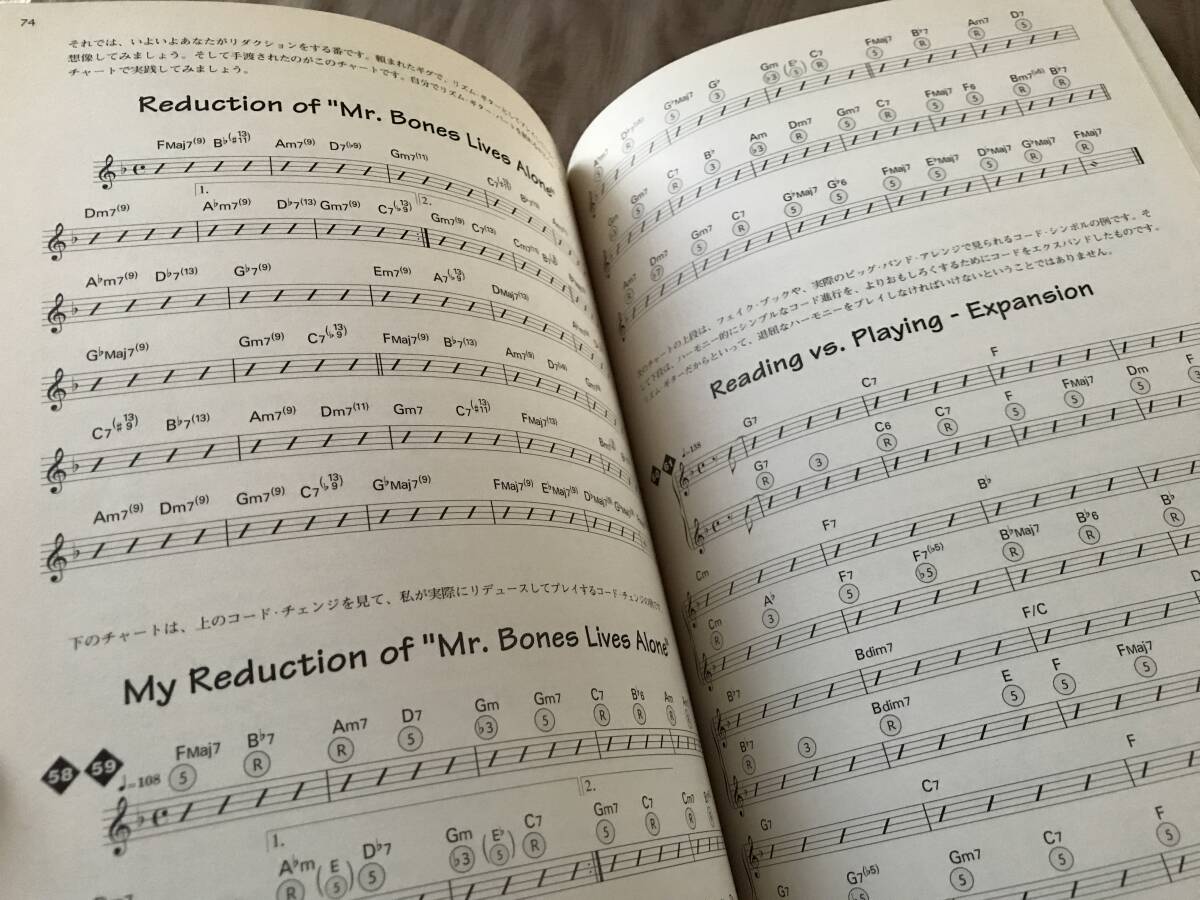 74
それでは、いよいよあなたがリダクションをする番です。頼まれたギグで、リズム・ギター
想像してみましょう。そして手渡されたのがこのチャートです。自分でリズム・ギター・パートを
チャートで実践してみましょう。
Reduction of "Mr. Bones Lives Alone"
FMaj7(9) B♭(♯11 13) Am7(9) D7(♭9) Gm7(11)
1. 2.
Dm7(9) A♭m7(9) D♭7(13) Gm7(9) C7(♭9 13) Gm7(9) C7(13)
A♭m7(9) D♭7(13) G♭7(9) Em7(9) A7(♭9 13) DMaj7(9)
G♭Maj7(9) Gm7(9) C7(♭9 13) FMaj7(9) B♭7(13) Am7(9)
C7(♯9 13) B♭7(13) Am7(9) Dm7(11) Gm7 C7(♯11 13) FMaj7(13)
Am7(9) Dm7(9) Gm7(9) C7(♭9 13) G♭Maj7(9) FMaj7(9) E♭Maj7(9) D♭Maj7(9)
下のチャートは、上のコード・チェンジを見て、私が実際にリデュースしてプレイするコード・チェンジの
My Reduction of "Mr. Bones Lives Alone"
58 59 ♩=108
FMaj7 B♭7 Am7 D7 Gm Gm7 C7 B♭6 Am
5 R R 5 ♭3 5 R R R
1. 2.
A♭m (E) D♭7 Gm (E♭) C7 Gm7 C7 Cm7
R (5) 5 ♭3 (5) R 5 R R
G♭Maj7 G♭ Gm (E) C7 FMaj7 B♭7 Am7 D7
5 3 ♭3 (5) R 5 R R 5
Gm Gm7 C7 B♭ Am Dm7 Gm7 C7 FMaj7 F6 Bm7(♭5) B♭7
R 5 R 3 ♭3 R 5 R 5 5 R R
Am7 Dm7 Gm7 C7 G♭Maj7 G♭6 FMaj7 E♭Maj7 D♭Maj7 G♭Maj7 FMaj7
R ♭7 5 R 5 5 5 5 5 R R
次のチャートの上段は、フェイク・ブックや、実際のビッグ・バンド・アレンジで見られるコード・シンボルの例です。そ
して下段は、ハーモニー的にシンプルなコード進行を、よりおもしろくするためにコードをエクスパンドしたものです。
リズム・ギターだからといって、退屈なハーモニーをプレイしなければいけないということではありません。
Reading vs. Playing - Expansion
♩=138
G7 C7 F
G7 C6 C7 F FMaj7 Dm
R 3 R R 5 5 5
Cm F7 B♭
Cm A♭ F7 F7(♭5) B♭Maj7 B♭6 B♭
R 3 5 ♭5 R R R
B♭7 Bdim7 F/C
B♭7 Bdim7 E F FMaj7
R 3 R 5 5 5
G7 C7 F
G7 G7(♭5) Gm7 C7 F
5 5 5